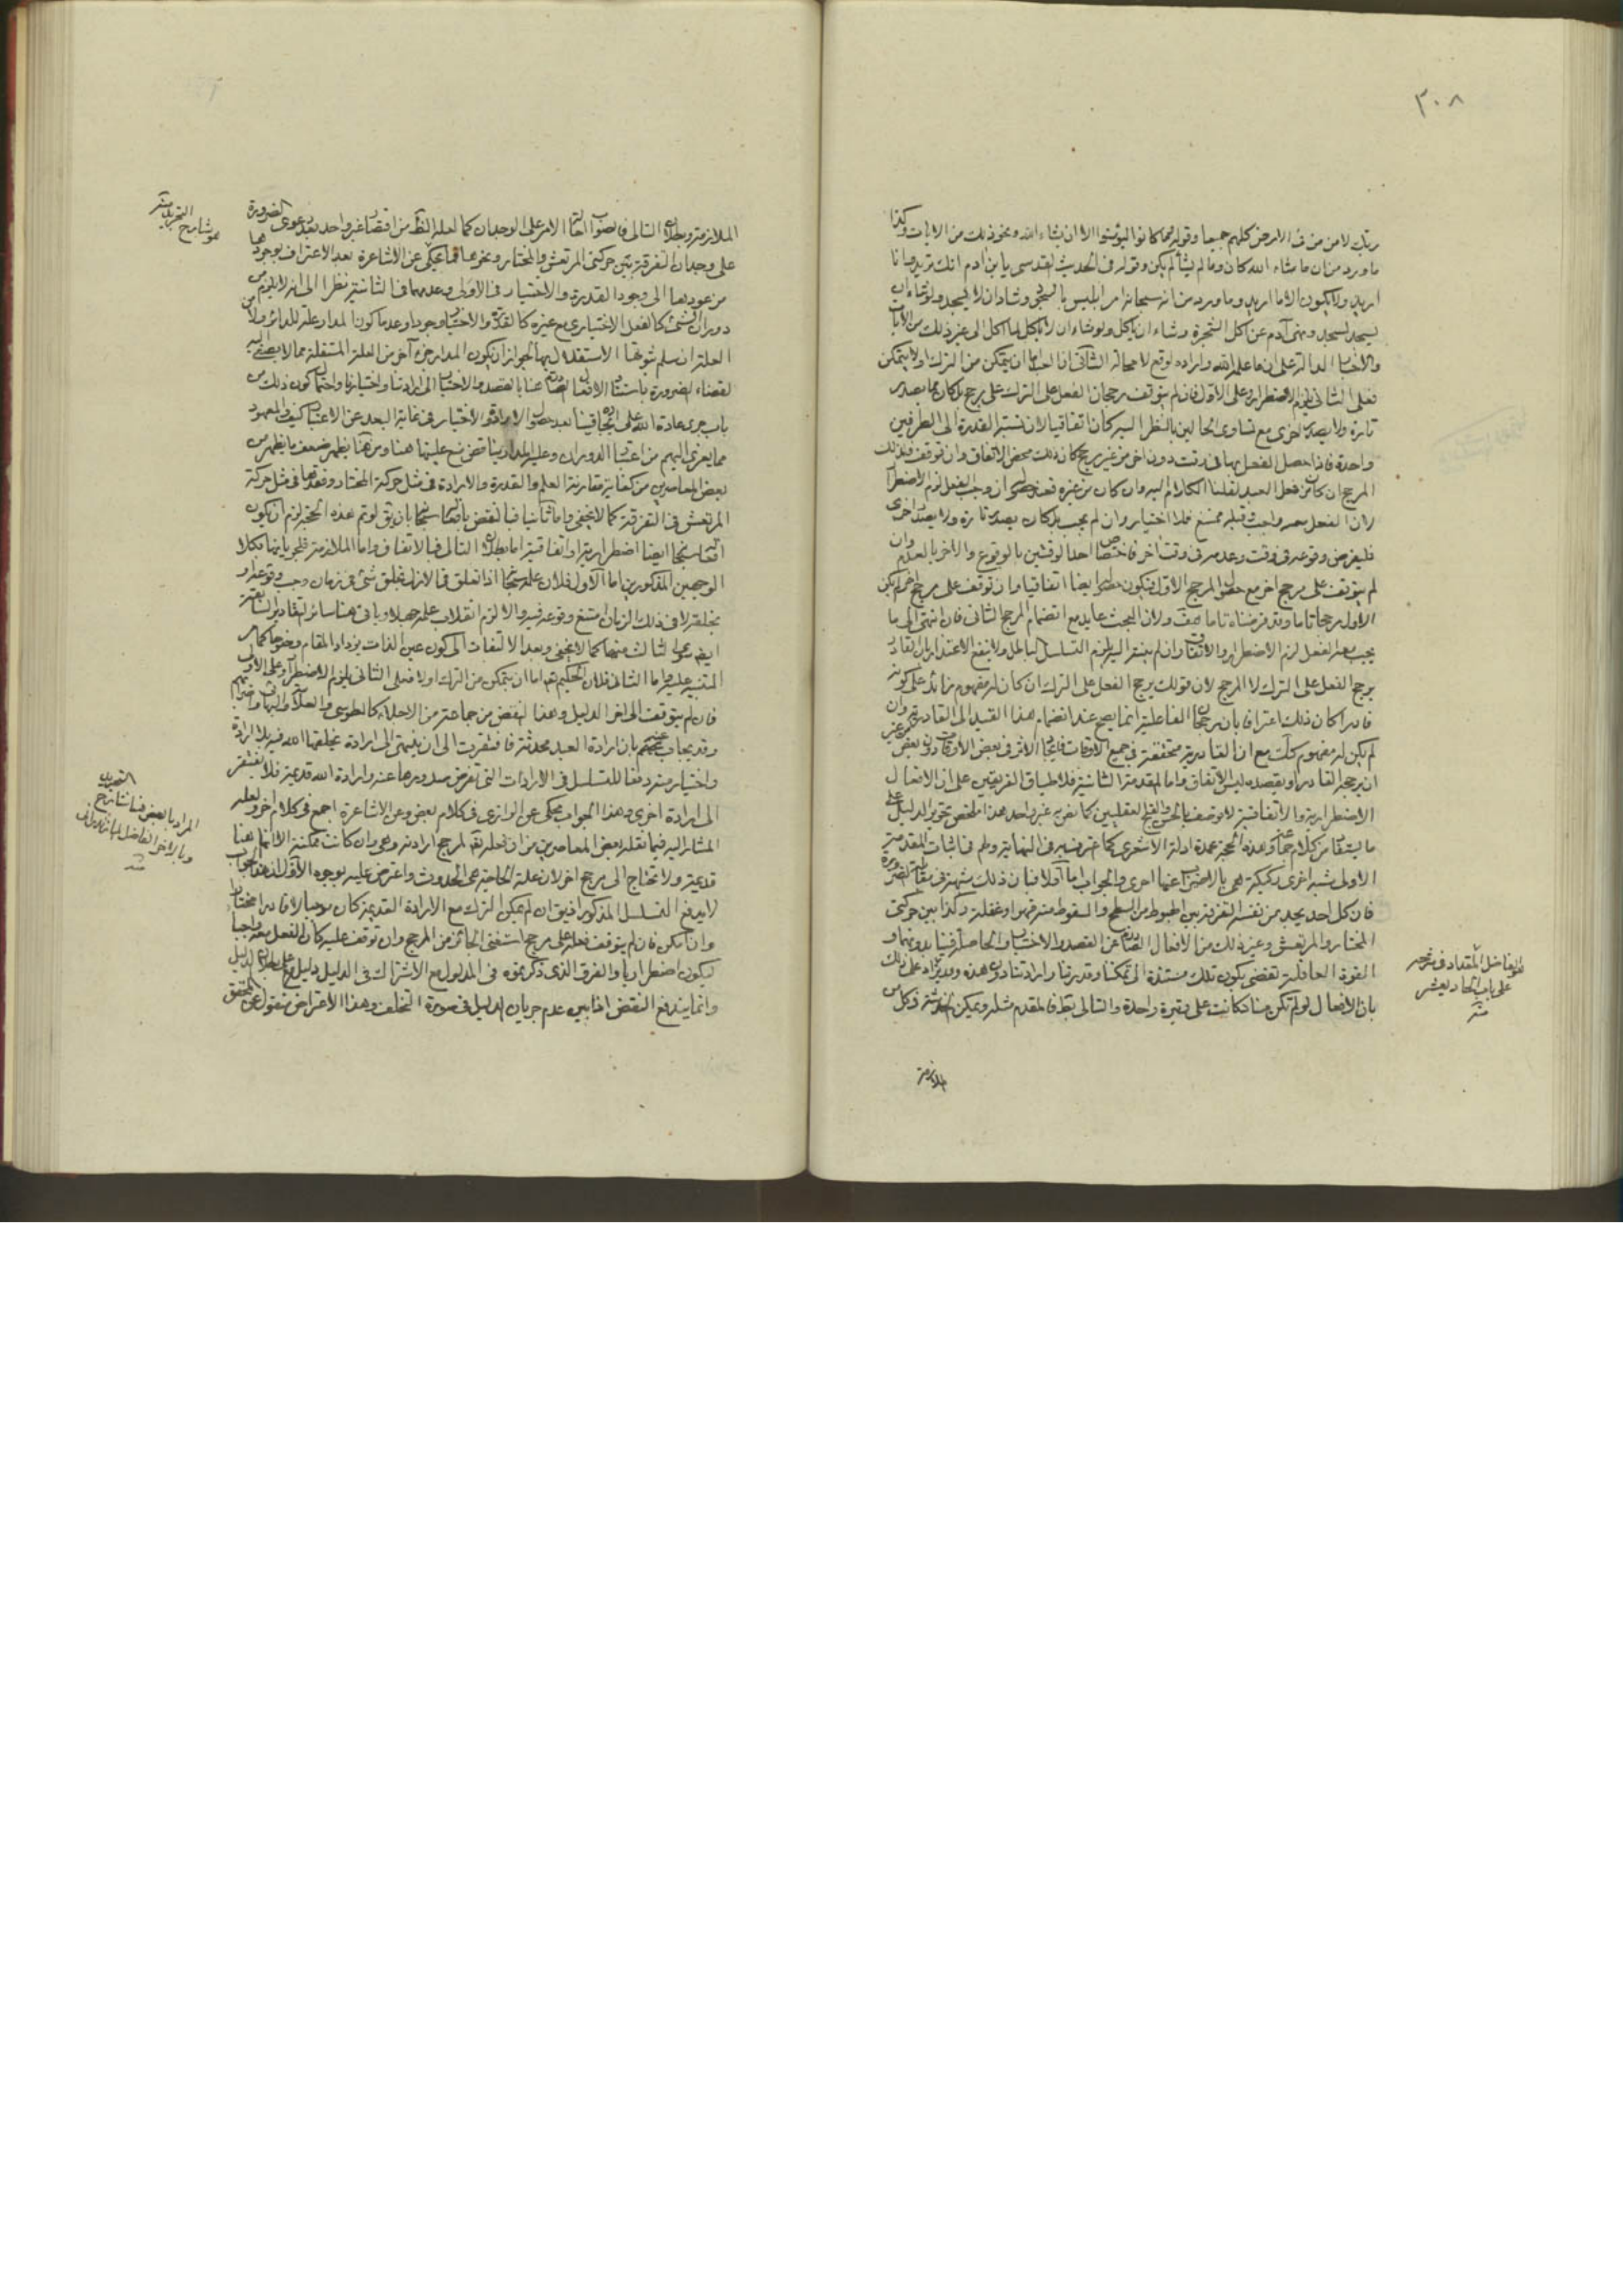 ٣٠٨
ربك لامن من في الارض كلهم جميعا وقوله فما كانوا ليؤمنوا الا ان يشاء الله ونحو ذلك من الايات وكذا
ما ورد من ان ما شاء الله كان وما لم يشأ لم يكن وقوله في الحديث القدسي يا بن ادم انك تريد وانا
اريد ولا يكون الا ما اريد وما ورد من انه سبحانه امر ابليس بالسجود وشاء ان لا يسجد ولو شاء ان
يسجد لسجد ونهى آدم عن اكل الشجرة وشاء ان ياكل ولو شاء ان لا ياكل لما اكل الى غير ذلك من الآيات
والاخبار الدالة على ان ما علم الله واراده لوقع لا محالة الثاني ان العبد اما ان يتمكن من الترك او لا يتمكن
فعلى الثاني يلزم الاضطرار وعلى الاول فان لم يتوقف رجحان الفعل على الترك على مرجح بل كان مما يصدر
تارة ولا يصدر اخرى مع تساوى الحالين بالنظر اليه كان اتفاقيا لان نسبة القدرة الى الطرفين
واحدة فاذا حصل الفعل بها في وقت دون اخر من غير مرجح كان ذلك محض الاتفاق وان توقف فذلك
المرجح ان كان من فعل العبد نقلنا الكلام اليه وان كان من غيره فعند حصوله ان وجب الفعل لزم الاضطرار
لان الفعل معه واجب وقبله ممتنع فلا اختيار وان لم يجب بل كان يصدر تارة ولا يصدر اخرى
فليفرض وقوعه في وقت وعدمه في وقت آخر فاختصاص احد الوقتين بالوقوع والآخر بالعدم ان
لم يتوقف على مرجح اخر مع حصول المرجح الاول فيكون ايضا اتفاقيا وان توقف على مرجح اخر لم يكن
الاول مرجحا تاما وقد فرضناه تاما هف ولان البحث عايد مع انضمام المرجح الثاني فان انتهى الى ما
يجب معه الفعل لزم الاضطرار والا لزم التسلسل الباطل ولا ينفع الاعتذار بان القادر
يرجح الفعل على الترك لا لمرجح لان قولك يرجح الفعل على الترك ان كان له مفهوم زائد على كونه
قادرا كان ذلك اعترافا بان رجحان الفاعلية انما يصح عند انضمام هذا القيد الى القادرية وان
لم يكن له مفهوم كذلك مع ان القادرية متحققة في جميع الاوقات الاثر في بعض الاوقات دون بعض
ان يرجحه القادر او يقصده ليس الا اتفاق واما المقدمة الثانية فلاطباق الفريقين على ان الافعال
الاضطرارية والاتفاقية لا توصف بالحسن والقبح العقليين كما نص به غير واحد هذا ملخص تحرير الدليل على
ما يستفاد من كلام جماعة وهذه الحجة عمدة ادلة الاشعرى كما اعترف به في النهاية ولهم في اثبات المقدمة
الاولى شبه اخرى ركيكة هي بالاضراب عنها احرى والجواب اما اولا فبان ذلك شبهة في مقابلة الضرورة
فان كل احد يجد من نفسه التفرقة بين الهبوط من السطح والسقوط منه قهرا او غفلة وكذا بين حركتي
المختار والمرتعش وغير ذلك من الافعال الصادرة عن القصد والاختيار والحاصلة فينا بدونهما و
القوة العاقلة تقضي بكون تلك مستندة الى تمكننا وقدرتنا وارادتنا دون هذه وقد يزاد على ذلك
بان الافعال لو لم تكن منا لكانت على وتيرة واحدة والتالي بط فالمقدم مثله ويمكن الخدشة في كل من
الملازمة
هو الفاضل المقداد في شرحه
على باب الحادي عشر
منه
الملازمة وبطلان التالي فالصواب احالة الامر على الوجدان كما لعله الظ من اقتصار غير واحد بعد دعوى الضرورة
على وجدان التفرقة بين حركتي المرتعش والمختار ونحوهما فما يحكى عن الاشاعرة بعد الاعتراف بوجودها
من عودها الى وجود القدرة والاختيار في الاولى وعدمهما في الثانية نظرا الى انه لا يلزم من
دوران الشيء كالفعل الاختيارى مع غيره كالقدرة والاختيار وجودا وعدما كون المدار علة للدائر ولا من
العلة ان سلم ثبوتها الاستقلال بها لجواز ان يكون المدار جزء آخر من العلة المستقلة مما لا يصغى اليه
لقضاء الضرورة باستناد الافعال الصادرة عنا بالقصد والاختيار الى ارادتنا واختيارنا واحتمال كون ذلك من
باب جرى عادة الله على ايجادها فينا بعد حصول الارادة والاختيار في غاية البعد عن الاعتبار كيف والمعهود
مما يعزى اليهم من اعتبار الدوران وعلية المدار يناقض منع عليتهما هنا ومن هنا يظهر ضعف ما يظهر من
بعض المعاصرين من كفاية مقارنة العلم والقدرة والارادة في مثل حركة المختار وفقدها في مثل حركة
المرتعش في التفرقة كما لا يخفى واما ثانيا فبالنقض بافعاله سبحانه بان يق لو تم هذه الحجة لزم ان يكون
افعاله سبحانه ايضا اضطرارية او اتفاقية اما بطلان التالي فبالاتفاق واما الملازمة فلجريانها بكلا
الوجهين المذكورين اما الاول فلان علمه سبحانه اذا تعلق في الازل بخلق شئ في زمان وجب وقوعه او
بخلقه لا في ذلك الزمان امتنع وقوعه فيه والا لزم انقلاب علمه جهلا وياتي هنا سائر التقادير السابقة
المتنبه عليه واما الثاني فلان الحكيم تع اما ان يتمكن من الترك او لا فعلى الثاني يلزم الاضطرار وعلى الاول
فان لم يتوقف الى اخر الدليل وهذا النقض من جماعة من الاجلاء كالطوسي والعلامة
وقد يجاب عنه بان ارادة العبد محدثة فافتقرت الى ان ينتهي الى ارادة يخلقها الله فيه بلا ارادة
واختيار منه دفعا للتسلسل في الارادات التي تفرض صدورها عنه وارادة الله قديمة فلا تفتقر
الى ارادة اخرى وهذا الجواب محكي عن الرازي في كلام بعض وعن الاشاعرة اجمع في كلام اخر ولعله
المشار اليه فيما نقله بعض المعاصرين من ان فعله تع لمرجح ارادته وهي وان كانت ممكنة الا انها هنا
قديمة ولا تحتاج الى مرجح اخر لان علة الحاجة هي الحدوث واعترض عليه بوجوه الاول ان هذا الجواب
لا يدفع التسلسل المذكور اذ يق ان لم يمكن الترك مع الارادة القديمة كان موجبا لا قادرا مختارا
وان امكن فان لم يتوقف فعله على مرجح استغنى الجائز عن المرجح وان توقف عليه كان الفعل معه واجبا
فيكون اضطراريا والفرق الذي ذكرتموه في المدلول مع الاشتراك في الدليل دليل على بطلان الدليل
وانما يندفع النقض اذا بين عدم جريان الدليل في صورة التخلف وهذا الاعتراض منقول عن المحقق
هو شارح
التجريد منه
المراد بالبعض هنا شارح
التجريد
وبالاخر الفاضل المازندراني
منه